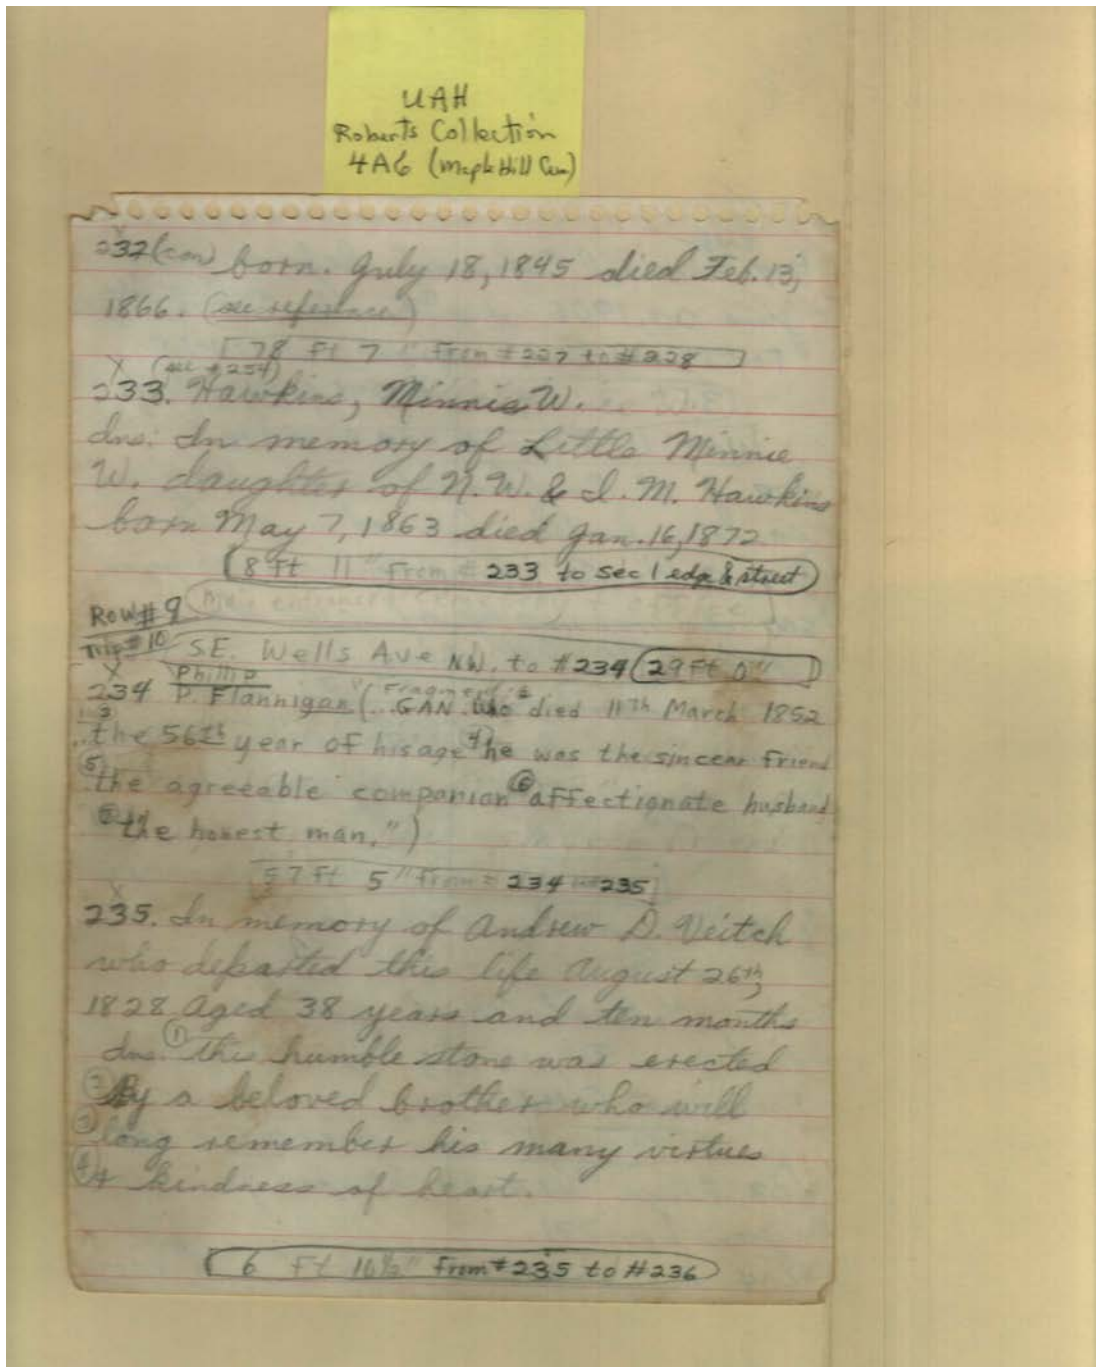 UAH
Roberts Collection
4A6 (Maple Hill Cem)
232 (con) born. July 18, 1845 died Feb. 13,
1866. (see reference)
78 Ft 7" From #227 to #228
X (see #254)
233. Hawkins, Minnie W.
Ins: In memory of Little Minnie
W. daughter of N. W. & I. M. Hawkins
born May 7, 1863 died Jan. 16, 1872
8 Ft 11" From # 233 to Sec 1 edge & street
Row # 9 Main entrance
Trip # 10 S.E. Wells Ave NW. to #234 29 Ft 0"
X Phillip
234 P. Flannigan "(Fragment: ..GAN who died 11th March 1852
..the 56th year of his age 4 he was the sincear friend
5 the agreeable companion 6 affectionate husband
7 the honest man.")
57 Ft 5" from # 234 235
X
235. In memory of Andrew D. Veitch
who departed this life August 26th,
1828 Aged 38 years and ten months
Ins. 1 this humble stone was erected
2 By a beloved brother who will
3 long remember his many virtues
4 & kindness of heart.
6 Ft 10½" From # 235 to #236